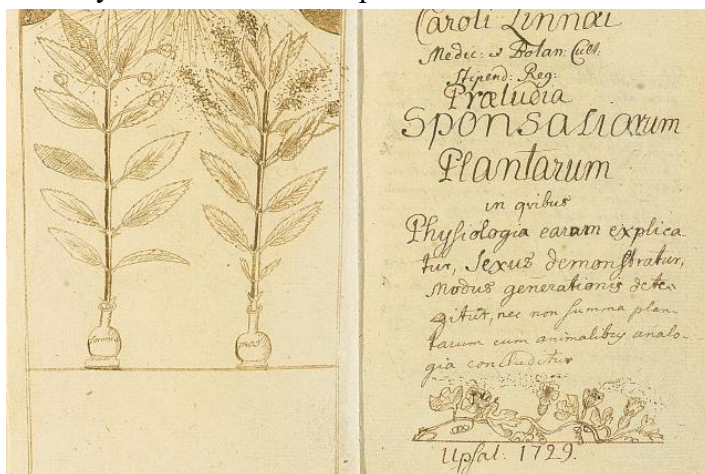 Caroli Linnæi
Medic: & Botan: Cult.
Stipend: Reg:
Præludia
SPONSALIARUM
Plantarum
in qvibus
Physiologia earum explica
tur, Sexus demonstratur,
Modus generationis dete-
gitur, nec non summa plan-
tarum cum animalibus analo-
gia concluditur
Upsal: 1729.